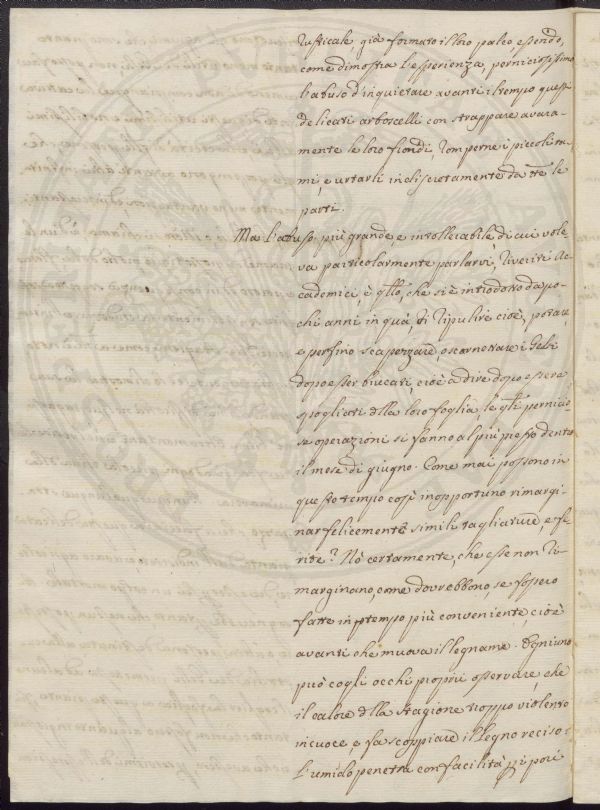 rusticale, già formato il loro palco, essendo,
come dimostra l'essperienza, perniciosissimo
l'abuso d'inquietare avanti il tempo questi
delicati arboscelli con strappare avara-
mente le loro frondi, romperne i piccoli ra-
mi, e urtarli indiscretamente da tte le
parti.
Ma l'abuso più grande, e intollerabile, di cui vole-
va particolarmente parlarvi, riveriti Ac-
cademici, è qllo, che si è introdotto da po-
chi anni in quà di ripulire cioè, potare,
e perfino scapezzare, o scarnettare i Gelsi
dopo esser bruccati, cioè a dire dopo essere
spogliati dlla loro foglia, le qli pernicio-
se operazioni si fanno al più presto dentro
il mese di giugno. Come mai possono in
questo tempo così inopportuno rimargi-
nar felicemente simili tagliature, e fe-
rite? Nò certamente, che esse non ri-
marginano, come dovrebbono, se fossero
fatte in tempo più conveniente, cioè
avanti che muova il legname. Ogniuno
può cogli occhi proprii osservare, che
il calore dlla stagione troppo violento
incuoce, e fa scoppiare il legno reciso:
l'umido penetra con facilità pi pori